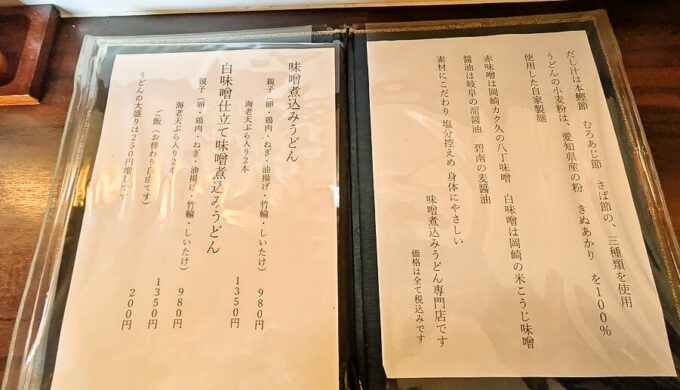 だし汁は本鰹節 むろあじ節 さば節の、三種類を使用
うどんの小麦粉は、愛知県産の粉 きぬあかり を100%
使用した自家製麺
赤味噌は岡崎カク久の八丁味噌 白味噌は岡崎の米こうじ味噌
醤油は岐阜の溜醤油 碧南の麦醤油
素材にこだわり 塩分控えめ 身体にやさしい
味噌煮込みうどん専門店です
価格は全て税込みです
味噌煮込みうどん
親子(卵・鶏肉・ねぎ・油揚げ・竹輪・しいたけ) 980円
海老天ぷら入り2本 1350円
白味噌仕立て味噌煮込みうどん
親子(卵・鶏肉・ねぎ・油揚げ・竹輪・しいたけ) 980円
海老天ぷら入り2本 1350円
ご飯(お替わり自由です) 200円
うどんの大盛りは250円増しです